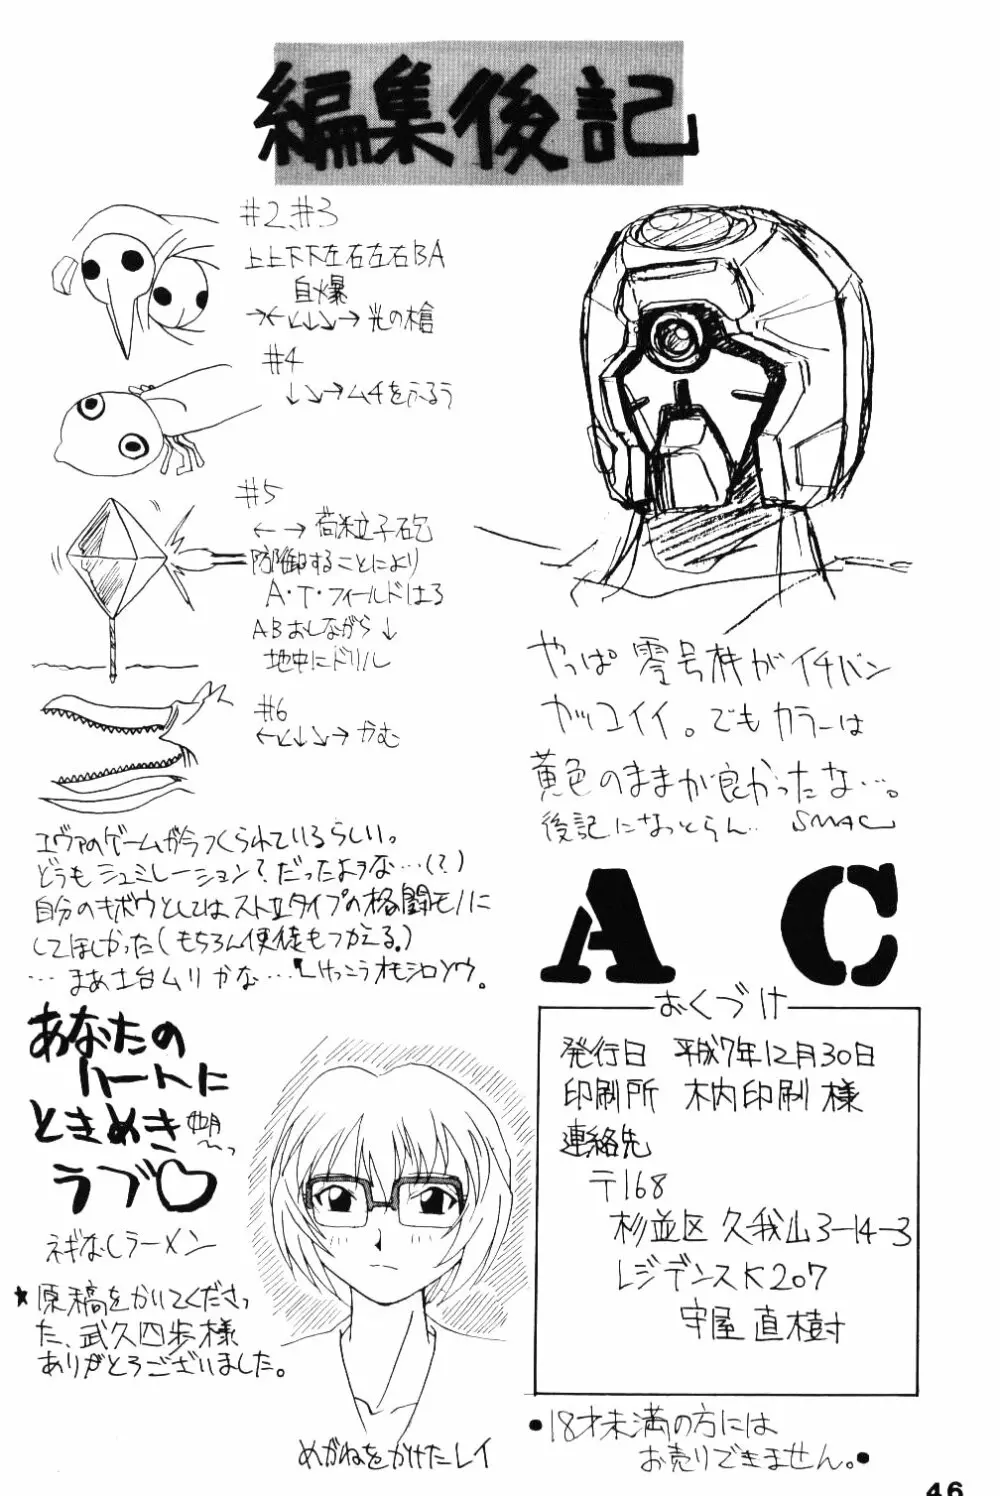 編集後記
#2、#3
上上下下左右左右BA
自爆
→←↙↓↘→光の槍
#4
↓↘→ムチをふるう
#5
←→荷粒子砲
防御することにより
A・T・フィールドはる
ABおしながら↓
地中にドリル
#6
←↙↓↘→かむ
エヴァのゲームが今つくられているらしい。
どうもシュミレーション?だったような…(?)
自分のキボウとしてはストIIタイプの格闘モノに
してほしかった(もちろん使徒もつかえる。)
…まあ土台ムリかな…
けっこうオモシロソウ。
あなたの
ハートに
ときめき
ラブ♡
ネギなしラーメン
★原稿をかいてくださっ
た、武久四歩様
ありがとうございました。
めがねをかけたレイ
やっぱ零号機がイチバン
カッコイイ。でもカラーは
黄色のままが良かったな…。
後記になっとらん‥ SMAC
AC
おくづけ
発行日 平成7年12月30日
印刷所 木内印刷 様
連絡先
〒168
杉並区 久我山3-14-3
レジデンスK207
守屋 直樹
●18才未満の方には
お売りできません。●
46